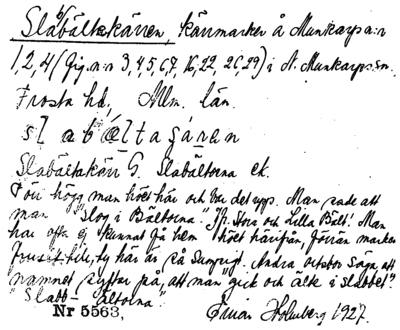 Slabältakärren, kärrmarken å Munkarp a:n
1, 2, 4 (Fig. n:n 3, 4, 5, 6, 7, 16, 22, 26, 29) i N. Munkarps sn.
Frosta hd, Mlm. län.
Slabältakärr G. Slabältorna ek.
Förr högg man höet här och bar det upp. Man sade att
man "slog i Bältorna". Jfr. Stora och Lilla Bält! Man
har ofta ej kunnat få hem höet härifrån, förrän marken
frusit till, ty här är så sumpigt. Andra ortsbor säga, att
namnet syftar på, att man gick och älte i slabbet.
"Slabb- ältorna".
Nr 5563, Einar Holmberg 1927.